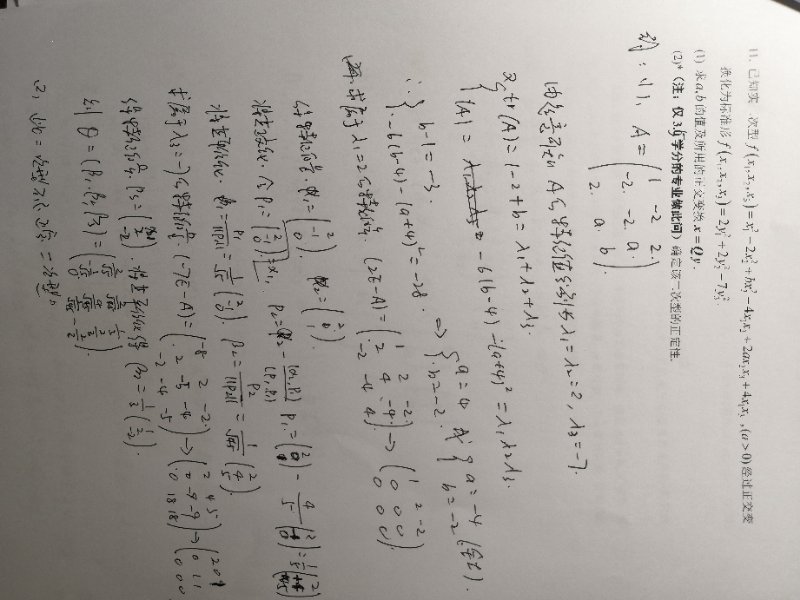 11. 已知实 次型 f(x₁,x₂,x₃)=x₁²-2x₂²+bx₃²-4x₁x₂+2ax₂x₃+4x₁x₃ ,(a>0)经过正交变
换化为标准形 f(x₁,x₂,x₃)=2y₁²+2y₂²-7y₃².
(1) 求a,b的值及所用的正交变换 x=Qy.
(2)*（注：仅3.5学分的专业做此问）确定该二次型的正定性.
解: (1), A = (1 -2 2. / -2. -2. a. / 2. a. b).
由题意可知 A的特征值分别为 λ₁=λ₂=2, λ₃=-7.
又 { tr(A)=1-2+b = λ₁+λ₂+λ₃.
|A| = -6(b-4)-(a+4)² = λ₁λ₂λ₃.
∴ { b-1=-3. / -6(b-4)-(a+4)²=-28. ⇒ { a=4 / b=-2. 或 { a=-4 / b=-2 (舍去).
求属于λ₁=2的特征向量. (2E-A)= (1 2 -2. / 2 4 -4. / -2 -4 4) → (1 2 -2 / 0 0 0 / 0 0 0).
得特征向量. α₁=(2 / -1 / 0), α₂=(2 / 0 / 1).
将其正交化. 令 β₁=(2 / -1 / 0)=α₁, β₂=α₂-(α₂,β₁)/(β₁,β₁) β₁=(2 / 0 / 1)-4/5(2 / -1 / 0)=1/5(2 / 4 / 5)
将其单位化. β₁/||β₁||=1/√5(2 / -1 / 0). β₂=β₂/||β₂||=1/√45(2 / 4 / 5).
求属于λ₃=-7的特征向量. (-7E-A)=(-8 2 -2. / 2 -5 -4 / -2 -4 -5) → (2 4 5 / 0 -9 -9 / 0 18 18) → (2 0 1 / 0 1 1 / 0 0 0)
得特征向量. 将其单位化得 β₃=1/3(1 / 2 / -2).
则 Q=(β₁.β₂,β₃)=(2/√5 2/√45 1/3 / -1/√5 4/√45 2/3 / 0 5/√45 -2/3).
(2) 此二次型不是正定二次型。